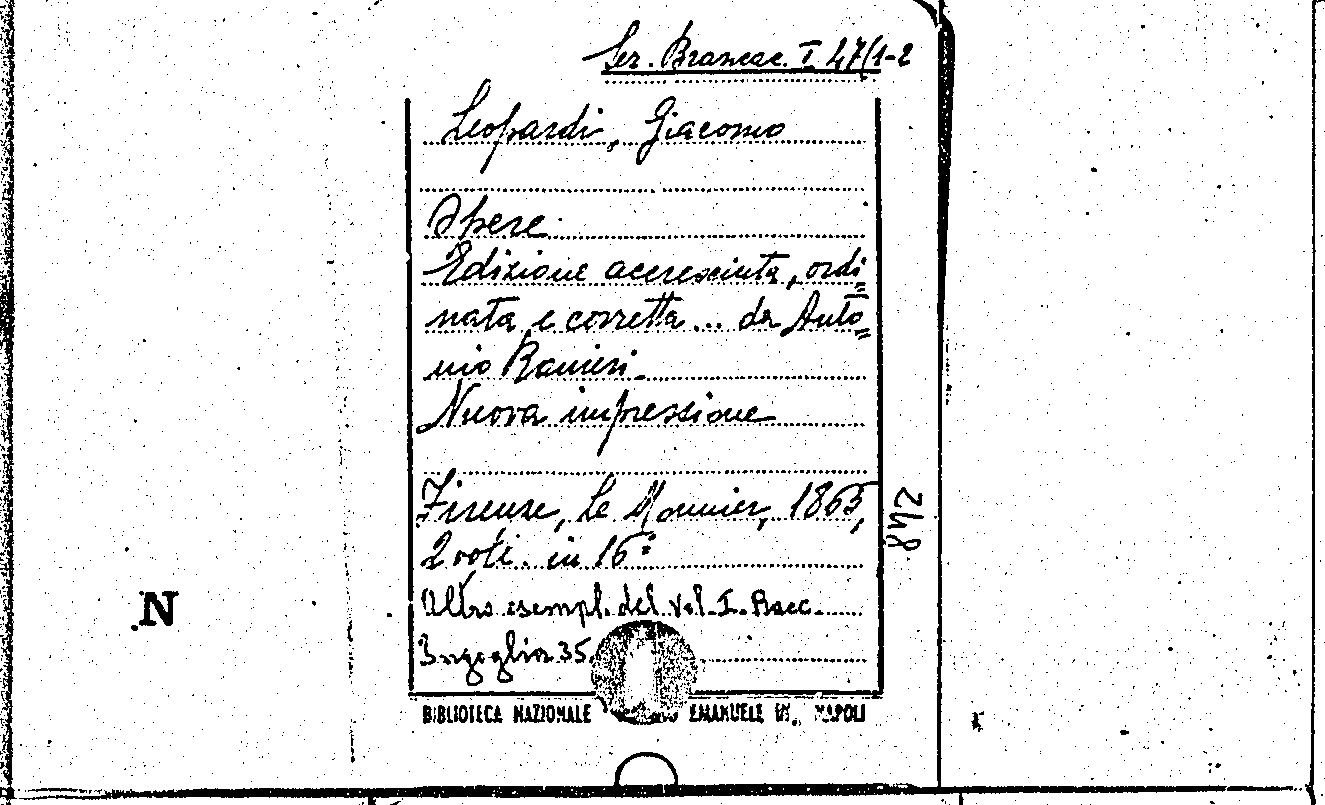 Ser. Brancac. I 47/1-2
Leopardi, Giacomo
Opere.
Edizione accresciuta, ordi=
nata e corretta... da Anto=
nio Ranieri.
Nuova impressione
Firenze, Le Monnier, 1865,
2 voll. in 16°
Altro esempl. del vol. I. Racc.
Ingoglia 35.
BIBLIOTECA NAZIONALE EMANUELE III, NAPOLI
842
N